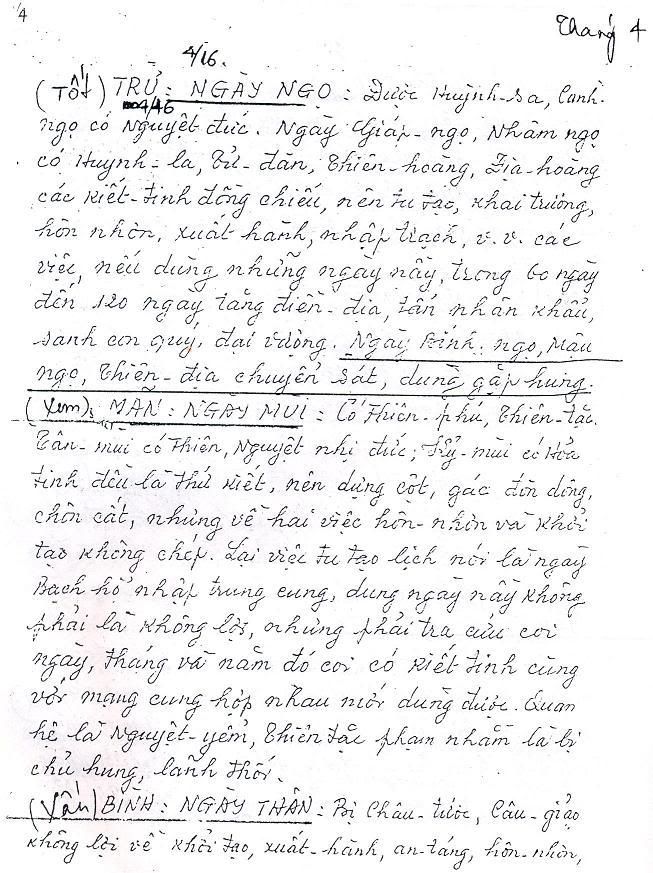 4
Tháng 4
4/16.
(Tốt) TRỪ : NGÀY NGỌ : Được Huỳnh-sa, Canh-
4/16
ngọ có Nguyệt đức. Ngày Giáp-ngọ, Nhâm ngọ
có Huỳnh-la, Tử-đàn, Thiên-hoàng, Địa-hoàng
các kiết-tinh đồng chiếu, nên tu tạo, khai trương,
hôn nhơn, xuất hành, nhập trạch, v.v. các
việc, nếu dùng những ngày nầy, trong 60 ngày
đến 120 ngày tăng điền-địa, tấn nhân khẩu,
sanh con quý, đại vượng. Ngày Bính-ngọ, Mậu
ngọ, Thiên-địa chuyển sát, dùng gặp hung.
(Xem): MÃN : NGÀY MÙI : Có Thiên-phú, Thiên-tặc.
Tân-mùi có Thiên, Nguyệt nhị đức; Kỷ-mùi có Hỏa
tinh đều là thứ kiết, nên dựng cột, gác đòn dông,
chôn cất, nhưng về hai việc hôn-nhơn và khởi
tạo không chép. Lại việc tu tạo lịch nói là ngày
Bạch hổ nhập trung cung, dùng ngày nầy không
phải là không lợi, nhưng phải tra cứu coi
ngày, tháng và năm đó coi có kiết tinh cùng
với mạng cung hợp nhau mới dùng được. Quan
hệ là Nguyệt-yểm, Thiên tặc phạm nhằm là bị
chủ hung, lãnh thối.
(Xấu) BÌNH : NGÀY THÂN : Bị Châu-tước, Câu-giảo
không lợi về khởi tạo, xuất-hành, an-táng, hôn-nhơn,